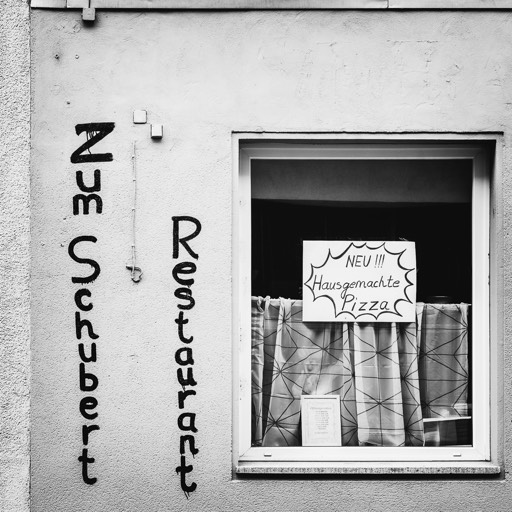 Zum Schubert
Restaurant
NEU !!!
Hausgemachte
Pizza